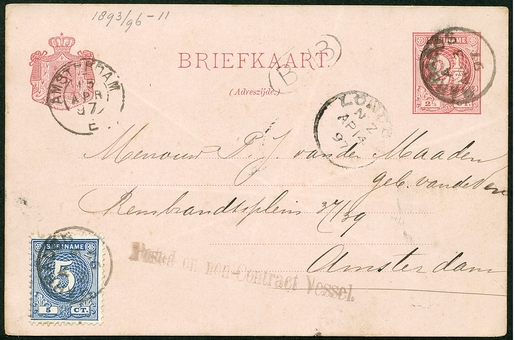 1893/96-11
SURINAME
2½
BRIEFKAART.
(Adreszijde.)
AMSTERDAM
15
APR
97
E
LONDON
N Z
AP14
97
Menouw P. J. van der Maaden
geb. van de Ven
Rembrandtsplein 37/39
Amsterdam
Posted on non-Contract Vessel.
SURINAME
5
5 CT.